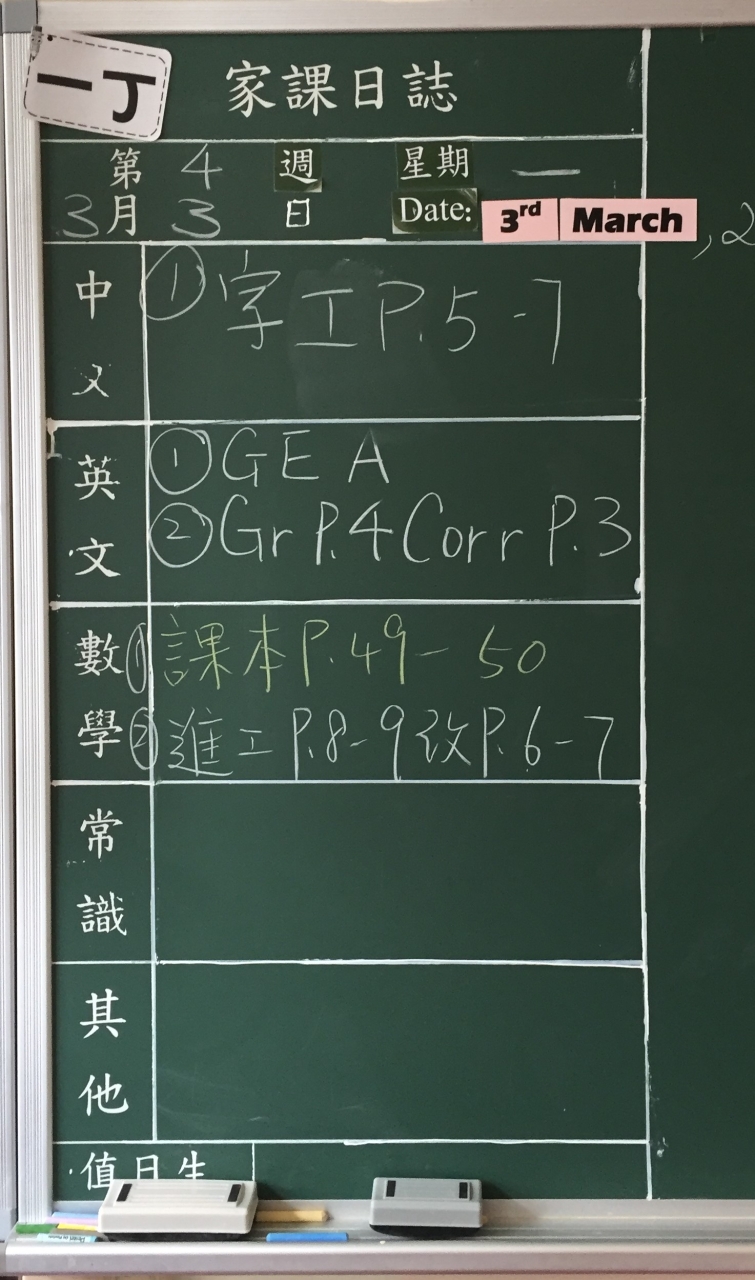 一丁
家課日誌
第 4 週 星期 一
3月 3 日 Date: 3rd March ,2
中文 ① 字工P.5-7
英文 ① GE A
② Gr P.4 Corr P.3
數學 ① 課本P.49-50
② 進工P.8-9改P.6-7
常識
其他
值日生